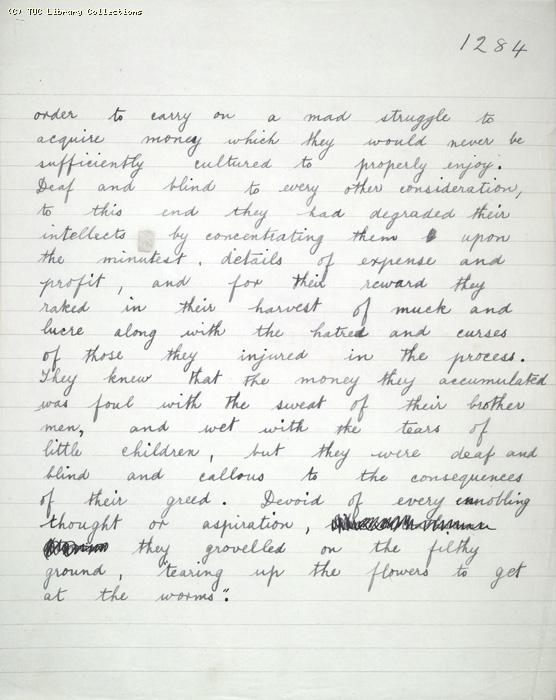 (C) TUC Library Collections
1284
order to carry on a mad struggle to
acquire money which they would never be
sufficiently cultured to properly enjoy.
Deaf and blind to every other consideration,
to this end they had degraded their
intellects by concentrating them upon
the minutest. details of expense and
profit, and for their reward they
raked in their harvest of muck and
lucre along with the hatred and curses
of those they injured in the process.
They knew that the money they accumulated
was foul with the sweat of their brother
men, and wet with the tears of
little children, but they were deaf and
blind and callous to the consequences
of their greed. Devoid of every ennobling
thought or aspiration,
they grovelled on the filthy
ground, "tearing up the flowers to get
at the worms".